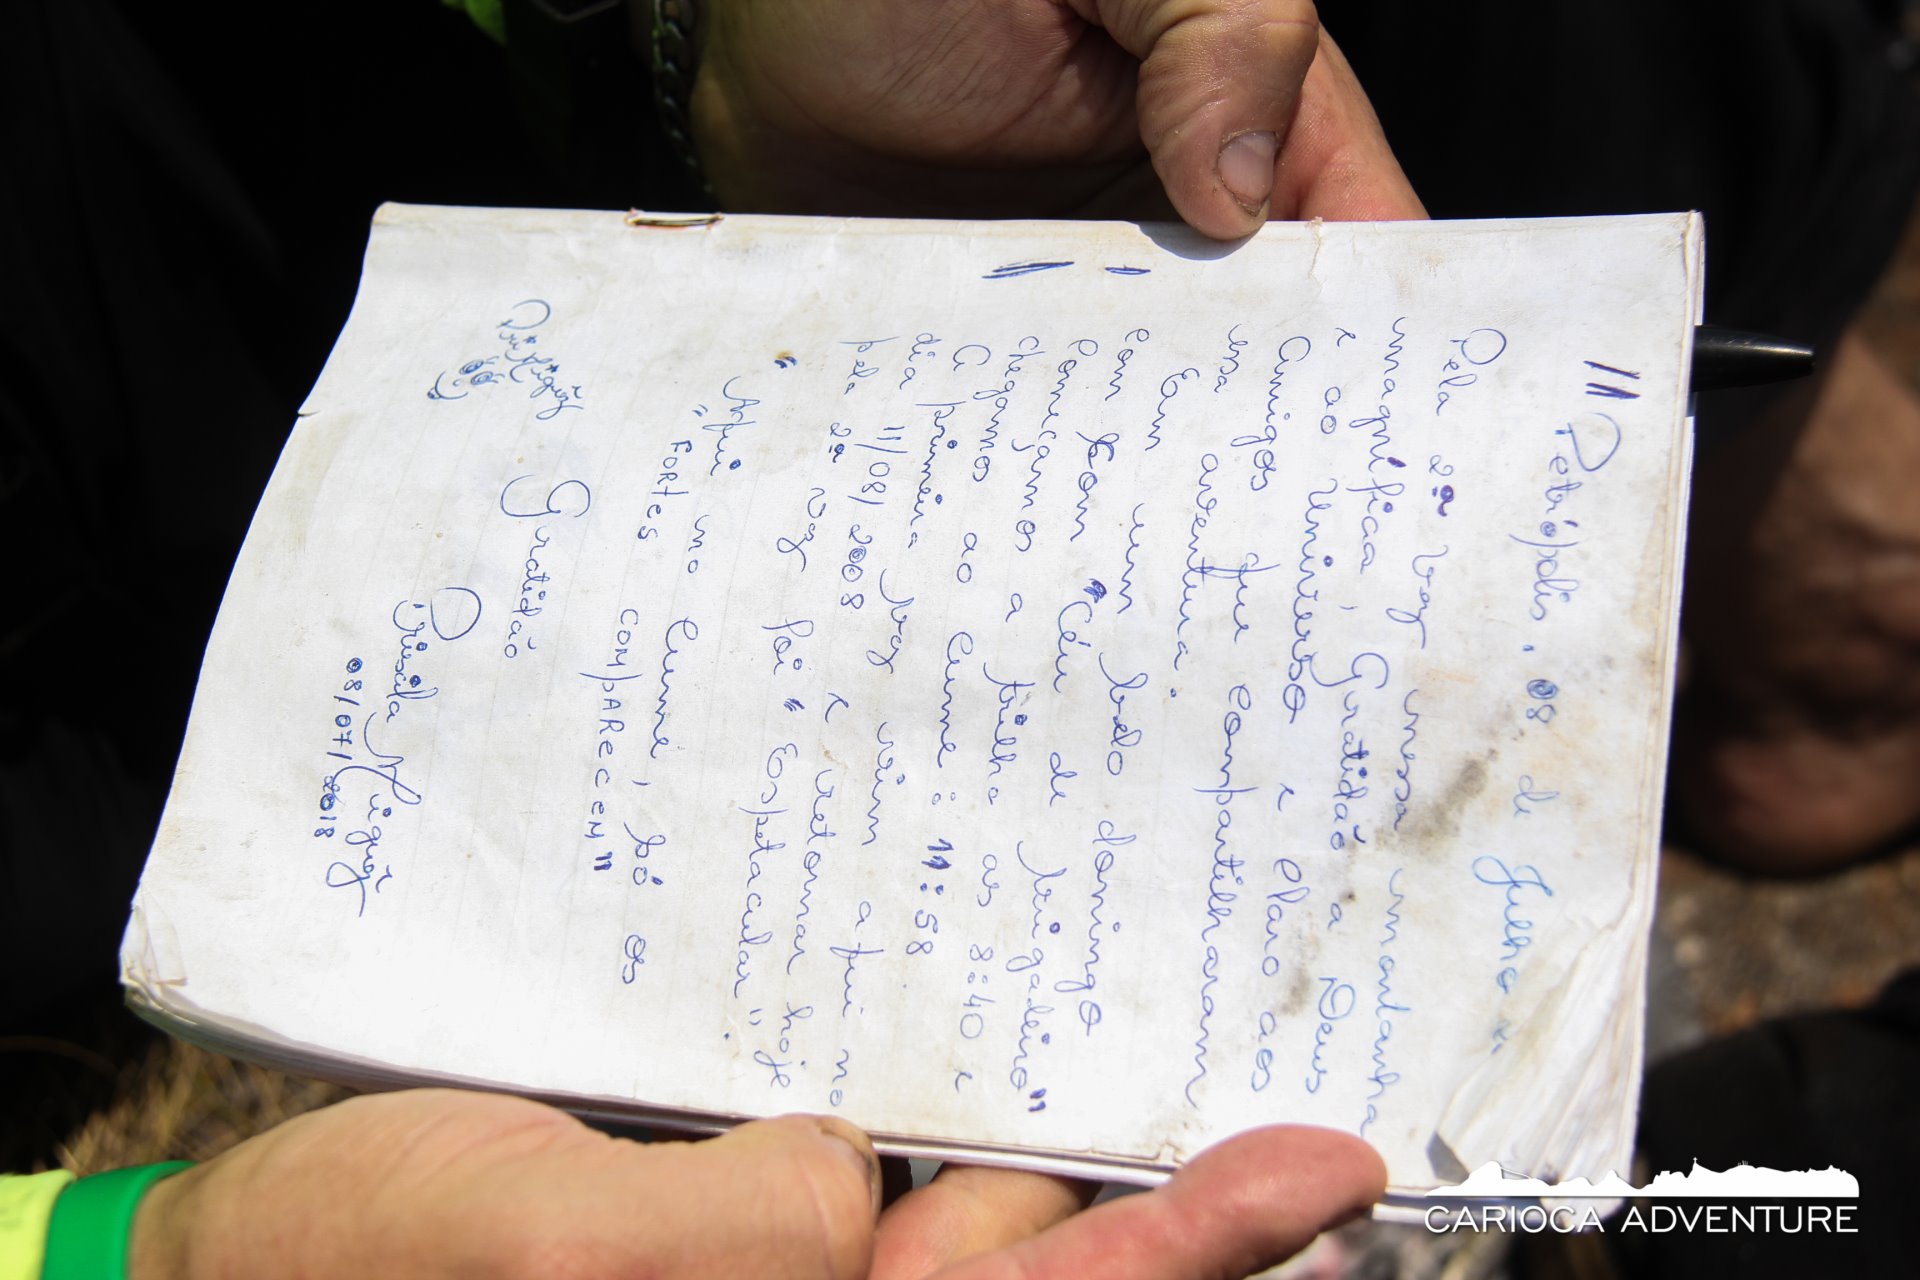 "Petrópolis, 08 de Julho
Pela 2ª vez nessa montanha
magnífica, Gratidão a Deus
e ao Universo e claro aos
Amigos que compartilharam
essa aventura.
Eam
com um belo domingo
com "Céu de brigadeiro"
começamos a trilha as 8:40 e
chegamos ao Cume: 11:58
A primeira vez vim aqui no
dia 11/08/2008 e retornar hoje
pela 2ª vez foi "Espetacular".
"Aqui no Cume, só os
"FORTES COMPARECEM"
Gratidão
Priscila
08/07/2018
CARIOCA ADVENTURE